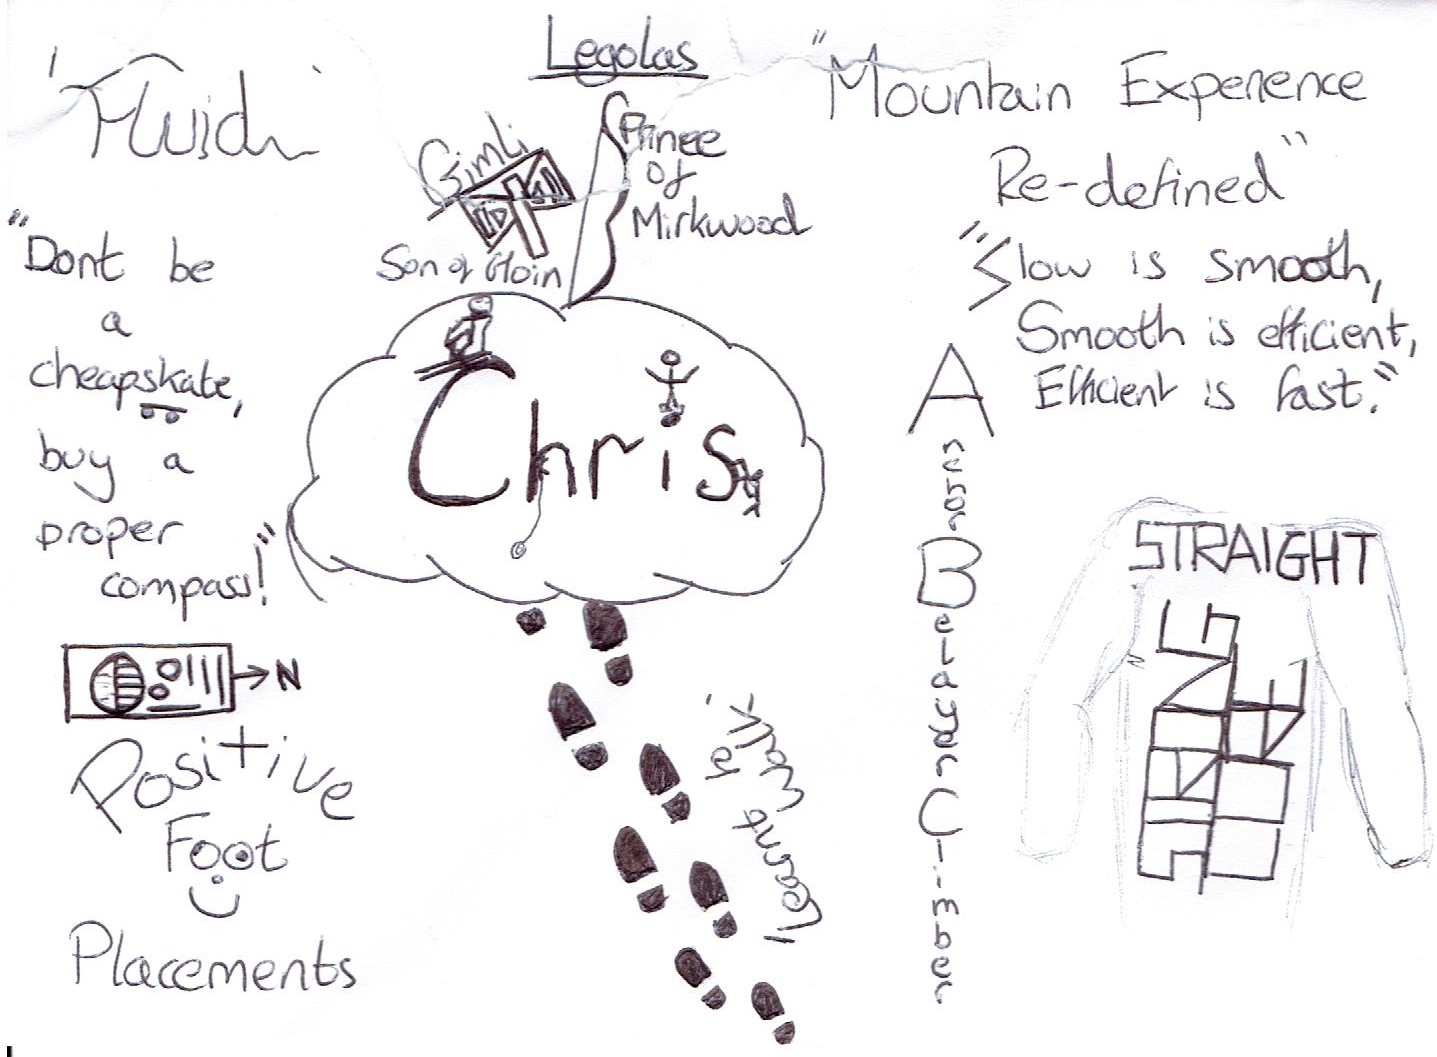 'Fluid'
Legolas
Prince
of
Mirkwood
Gimli
Son of Gloin
"Mountain Experience
Re-defined"
"Dont be
a
cheapskate,
buy a
proper
compass!"
N
Positive
Foot
Placements
Chris
I learnt to walk.
"Slow is smooth,
Smooth is efficient,
Efficient is fast."
Anchor
Belayer
Climber
STRAIGHT